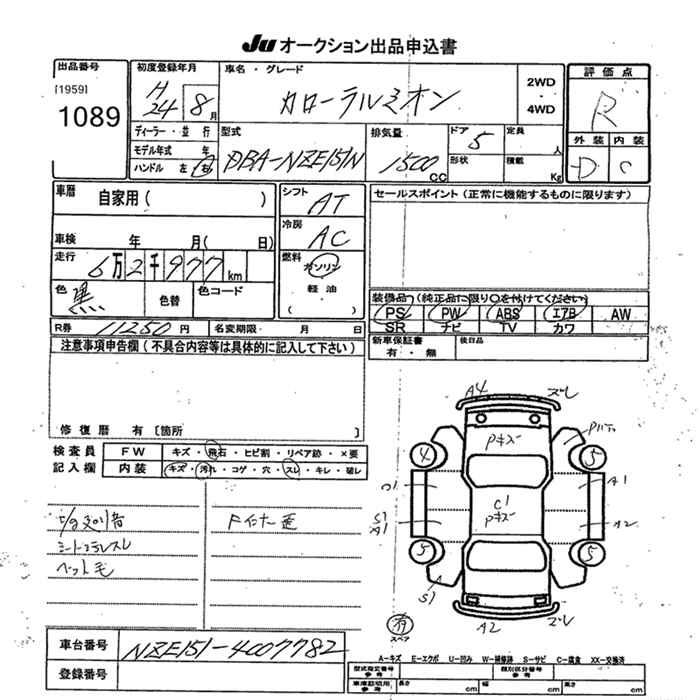 Ju オークション出品申込書
出品番号
[1959]
1089
初度登録年月
H
24 8 月
車名・グレード
カローラルミオン
2WD
・
4WD
評価点
R
外装 内装
D C
ディーラー・並行
モデル年式 年
ハンドル 左 右
型式
DBA-NZE151N
排気量
1500 cc
ドア 5
形状
定員 人
積載 Kg
車歴 自家用( )
車検 年 月( 日)
走行 6万2千977km
色 黒 色替 色コード
シフト AT
冷房 AC
燃料 ガソリン
軽油
( )
セールスポイント(正常に機能するものに限ります)
装備品(純正品に限り○を付けてください)
PS PW ABS エアB AW
SR ナビ TV カワ
R券 11250 円 名変期限 月 日
新車保証書 後日品
有・無
注意事項申告欄(不具合内容等は具体的に記入して下さい)
修復歴 有 [箇所 ]
検査員
記入欄
FW キズ・飛石・ヒビ割・リペア跡・×要
内装 キズ・汚れ・コゲ・穴・スレ・キレ・破レ
シートスラレスレ
ペット毛
Fインナー歪
A4 ズレ
Pキズ
4 5
A1
C1
Pキズ
S1
A1
A2
5 5
A
S1
A2 ズレ
スペア
車台番号 NZE151-4007782
登録番号
A-キズ E-エクボ U-凹み W-補修跡 S-サビ C-腐食 XX-交換済
型式指定番号 参考
類別区分番号 参考
車庫証明用 参考 長さ cm 幅 cm 高さ cm